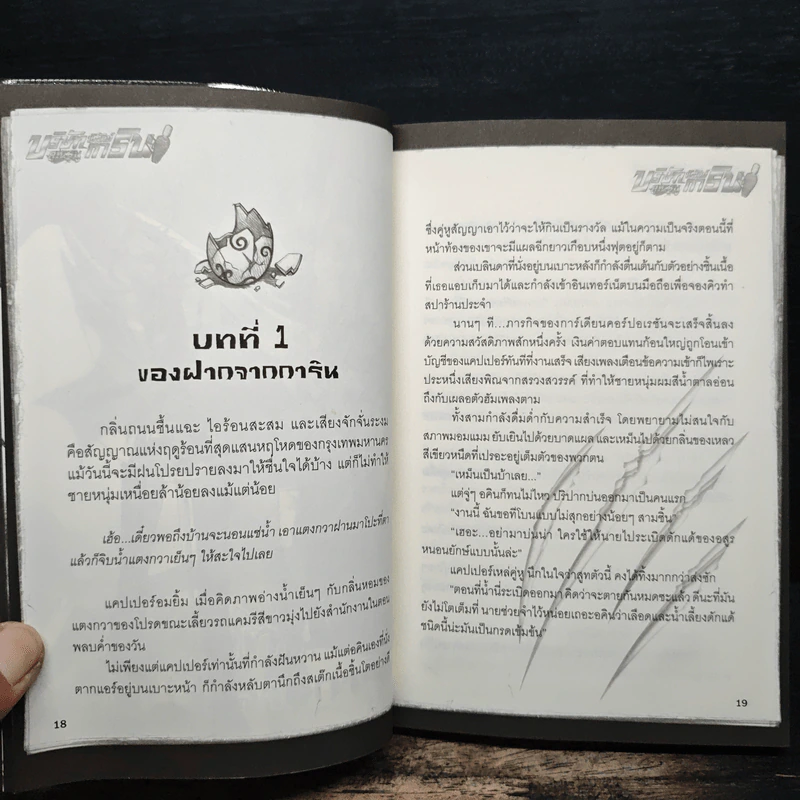 บทที่ 1
ของฝากจากการิน
กลิ่นถนนชื้นแฉะ ไอร้อนสะสม และเสียงจักจั่นระงม
คือสัญญาณแห่งฤดูร้อนที่สุดแสนหฤโหดของกรุงเทพมหานคร
แม้วันนี้จะมีฝนโปรยปรายลงมาให้ชื่นใจได้บ้าง แต่ก็ไม่ทำให้
ชายหนุ่มเหนื่อยล้าน้อยลงแม้แต่น้อย
เฮ้อ...เดี๋ยวพอถึงบ้านจะนอนแช่น้ำ เอาแตงกวาฝานมาโปะที่ตา
แล้วก็จิบน้ำแตงกวาเย็นๆ ให้สะใจไปเลย
แคปเปอร์อมยิ้ม เมื่อคิดภาพอ่างน้ำเย็นๆ กับกลิ่นหอมของ
แตงกวาของโปรดขณะเลี้ยวรถแคมรีสีขาวมุ่งไปยังสำนักงานในตอน
พลบค่ำของวัน
ไม่เพียงแต่แคปเปอร์เท่านั้นที่กำลังฝันหวาน แม้แต่อคินเองที่นั่ง
ตากแอร์อยู่บนเบาะหน้า ก็กำลังหลับตานึกถึงสเต๊กเนื้อชิ้นโตอย่างดี
18
ซึ่งคู่หูสัญญาเอาไว้ว่าจะให้กินเป็นรางวัล แม้ในความเป็นจริงตอนนี้ที่
หน้าท้องของเขาจะมีแผลฉีกยาวเกือบหนึ่งฟุตอยู่ก็ตาม
ส่วนเบลินดาที่นั่งอยู่บนเบาะหลังก็กำลังตื่นเต้นกับตัวอย่างชิ้นเนื้อ
ที่เธอแอบเก็บมาได้และกำลังเข้าอินเทอร์เน็ตบนมือถือเพื่อจองคิวทำ
สปาร้านประจำ
นานๆ ที...ภารกิจของการ์เดียนคอร์ปอเรชันจะเสร็จสิ้นลง
ด้วยความสวัสดิภาพสักหนึ่งครั้ง เงินค่าตอบแทนก้อนใหญ่ถูกโอนเข้า
บัญชีของแคปเปอร์ทันทีที่งานเสร็จ เสียงเพลงเตือนข้อความเข้าก็ไพเราะ
ประหนึ่งเสียงพิณจากสรวงสวรรค์ ที่ทำให้ชายหนุ่มผมสีน้ำตาลอ่อน
ถึงกับเผลอตัวฮัมเพลงตาม
ทั้งสามกำลังดื่มด่ำกับความสำเร็จ โดยพยายามไม่สนใจกับ
สภาพมอมแมม ยับเยินไปด้วยบาดแผล และเหม็นไปด้วยกลิ่นของเหลว
สีเขียวหนืดที่เปรอะอยู่เต็มตัวของพวกตน
"เหม็นเป็นบ้าเลย..."
แต่จู่ๆ อคินก็ทนไม่ไหว ปริปากบ่นออกมาเป็นคนแรก
"งานนี้ ฉันขอทีโบนแบบไม่สุกอย่างน้อยๆ สามชิ้น"
"เฮอะ...อย่ามาบ่นน่า ใครใช้ให้นายไประเบิดดักแด้ของอสูร
หนอนยักษ์แบบนั้นล่ะ"
แคปเปอร์เหล่คู่หู นึกในใจว่าสูทตัวนี้ คงได้ทิ้งมากกว่าส่งซัก
"ตอนที่น้ำนี่ระเบิดออกมา คิดว่าจะตายกันหมดซะแล้ว ดีนะที่มัน
ยังไม่โตเต็มที่ นายช่วยจำไว้หน่อยเถอะอคินว่าเลือดและน้ำเลี้ยงดักแด้
ชนิดนี้น่ะมันเป็นกรดเข้มข้น"
19